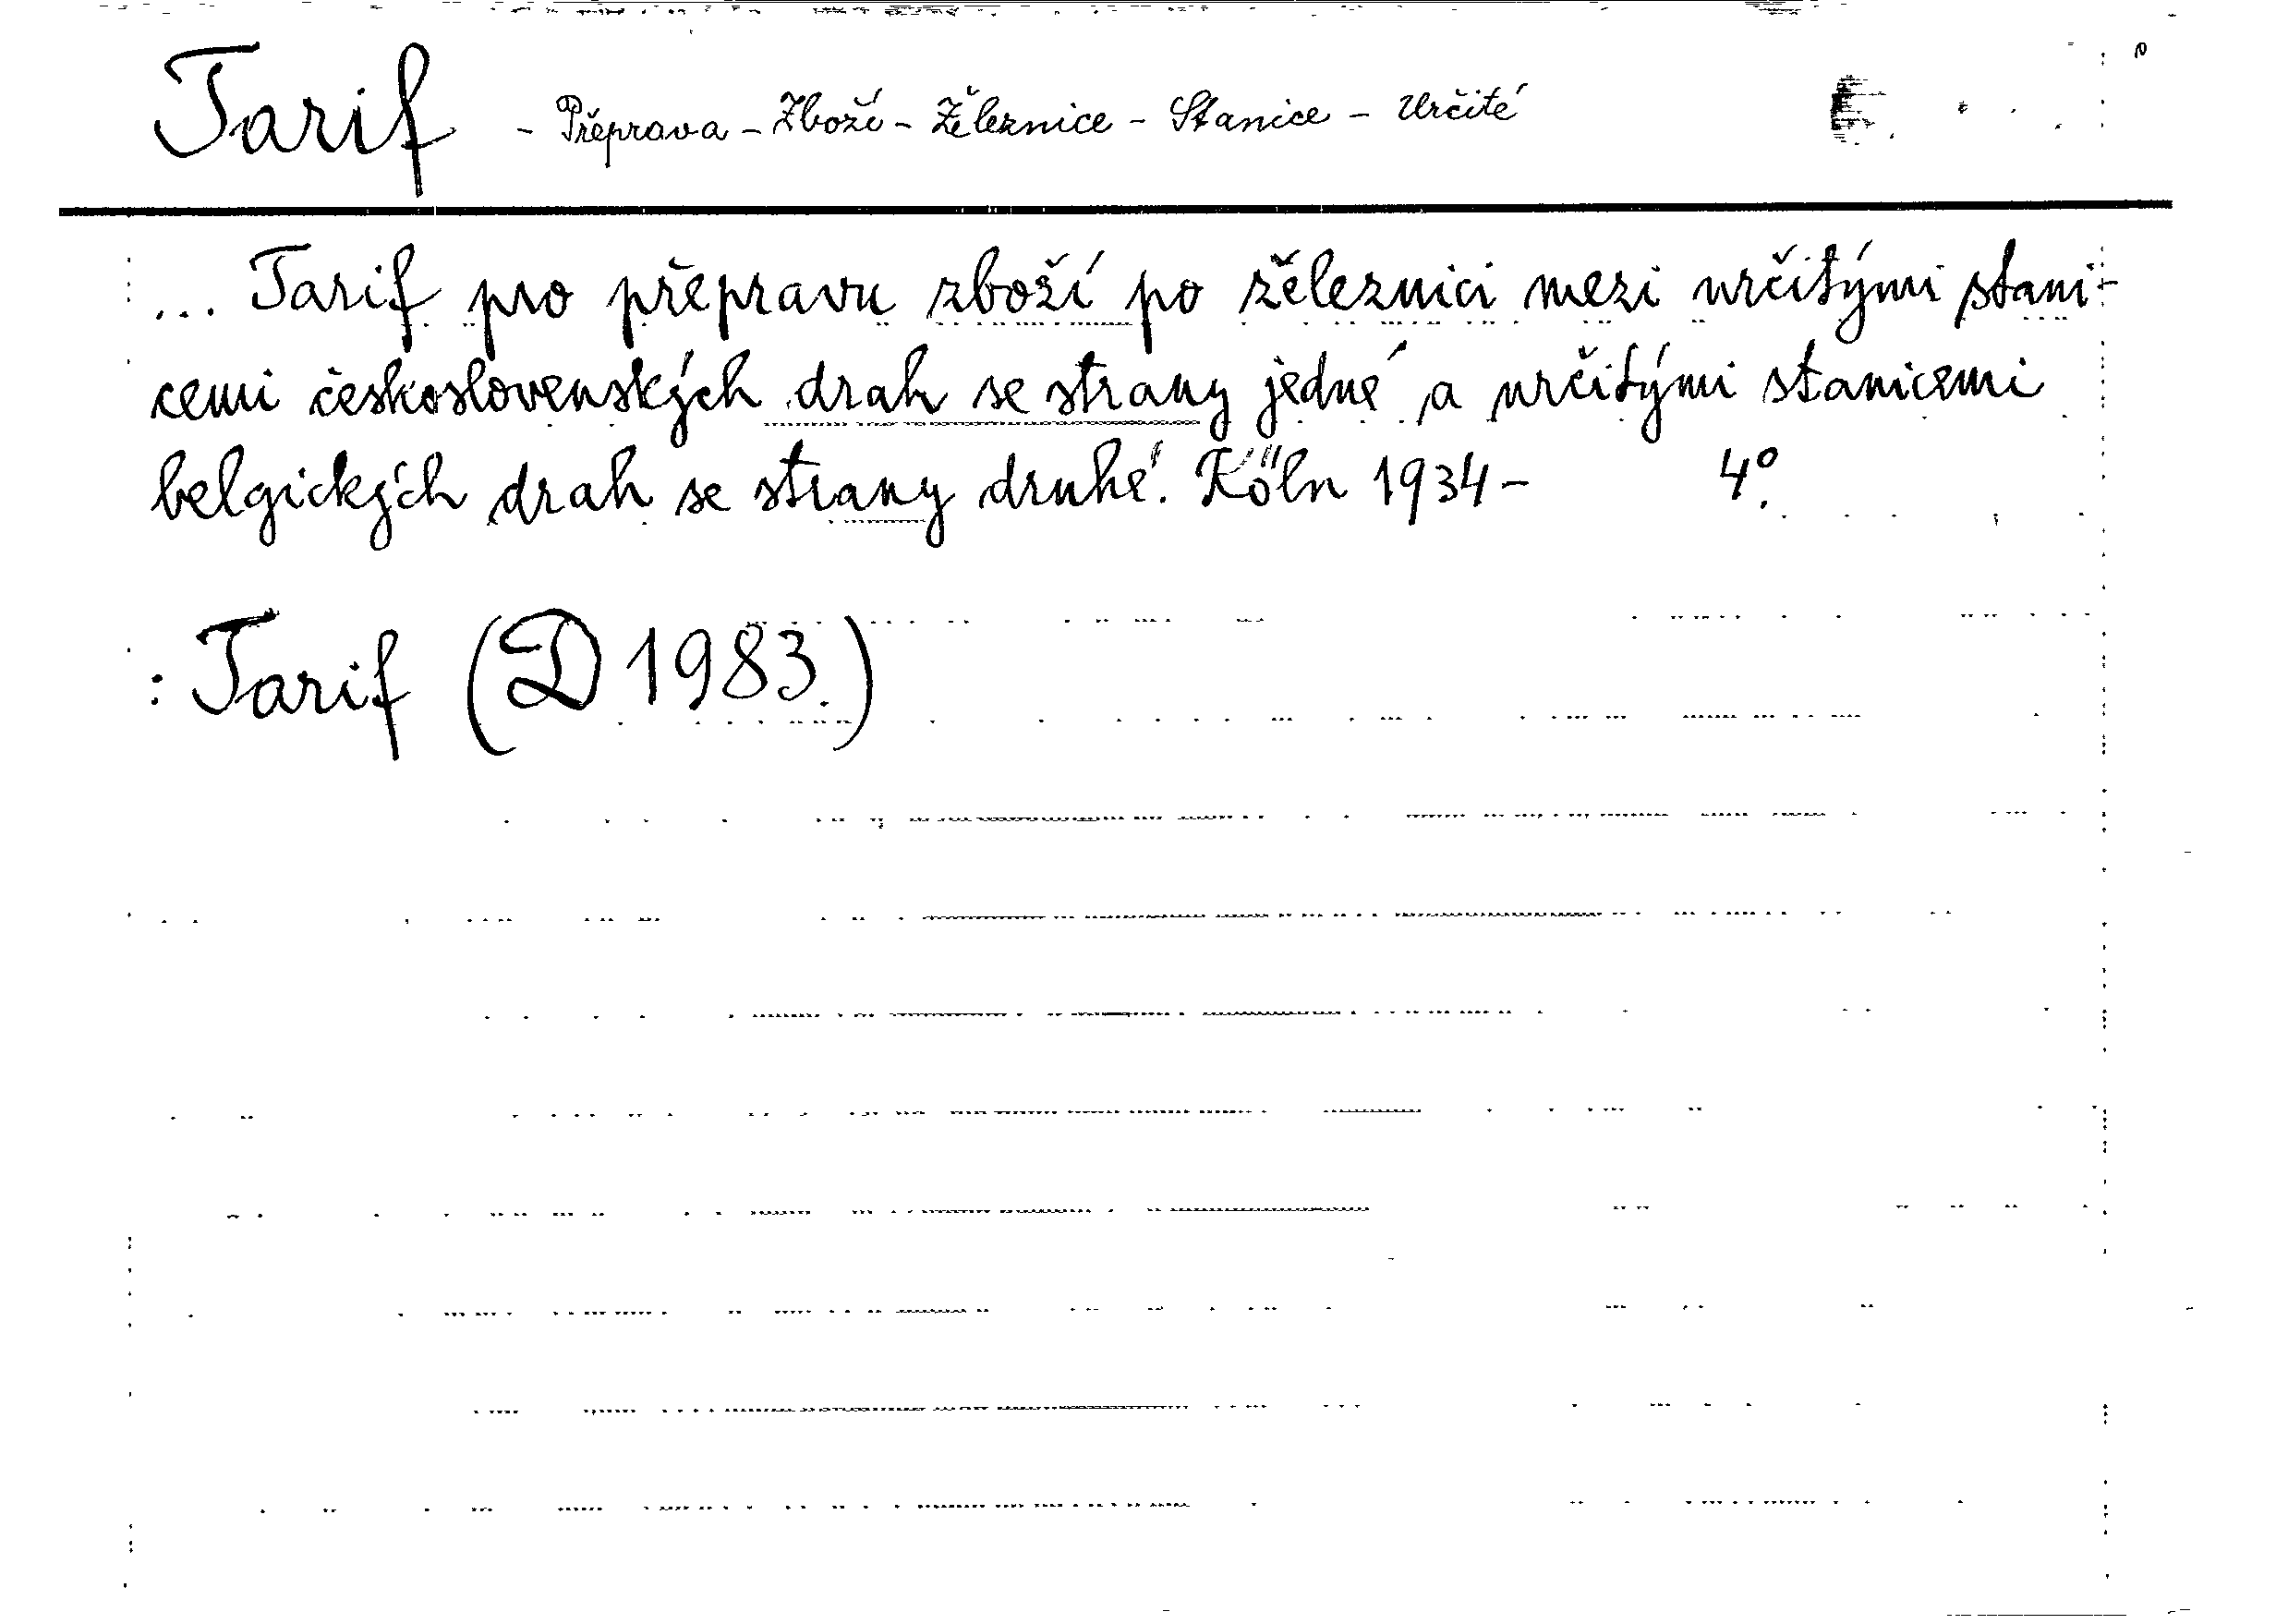 Tarif - Přeprava - Zboží - Železnice - Stanice - Určité
... Tarif pro přepravu zboží po železnici mezi určitými stani-
cemi československých drah se strany jedné a určitými stanicemi
belgických drah se strany druhé. Köln 1934- 4°.
: Tarif (D 1983.)